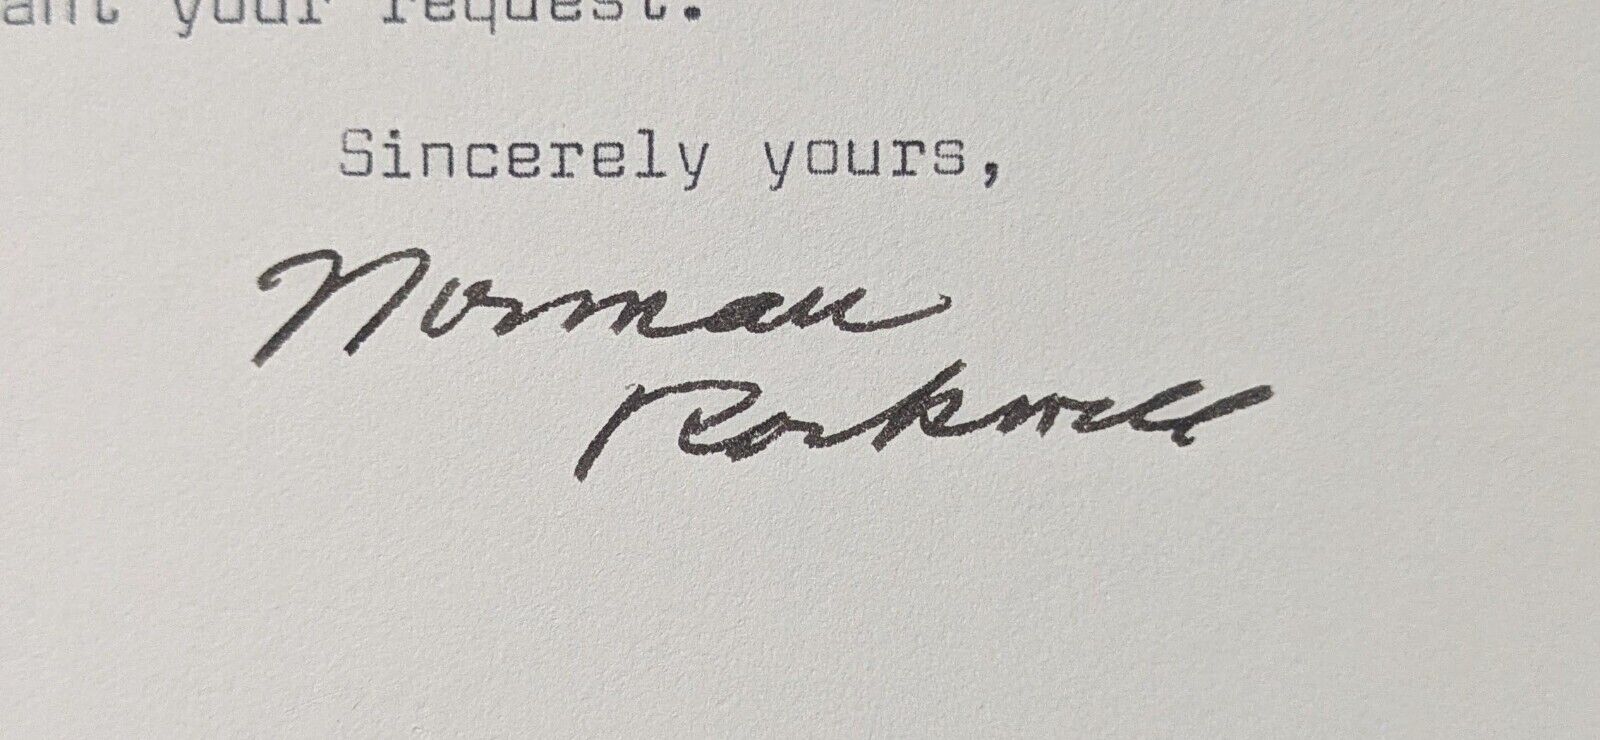 ant your request.
Sincerely yours,
Norman
Rockwell